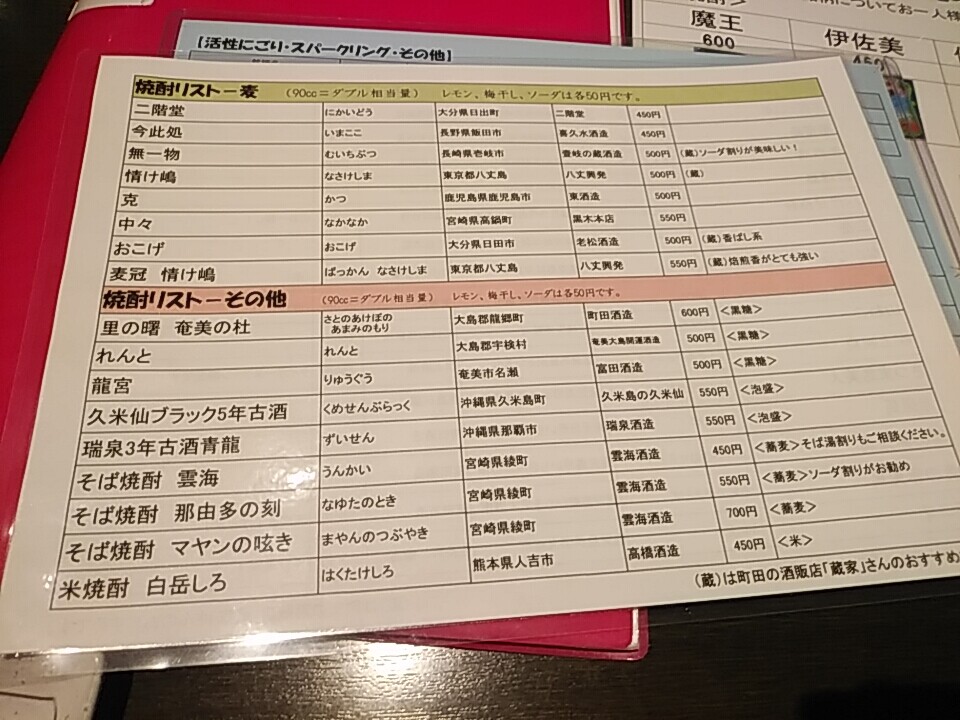 【活性にごり・スパークリング・その他】
についてお一人様
魔王
600
伊佐美
450
焼酎リストー麦 （90cc＝ダブル相当量） レモン、梅干し、ソーダは各50円です。
二階堂 にかいどう 大分県日出町 二階堂 450円
今此処 いまここ 長野県飯田市 喜久水酒造 450円
無一物 むいちぶつ 長崎県壱岐市 壹岐の蔵酒造 500円 （蔵）ソーダ割りが美味しい！
情け嶋 なさけしま 東京都八丈島 八丈興発 500円 （蔵）
克 かつ 鹿児島県鹿児島市 東酒造 500円
中々 なかなか 宮崎県高鍋町 黒木本店 550円
おこげ おこげ 大分県日田市 老松酒造 500円 （蔵）香ばし系
麦冠 情け嶋 ばっかん なさけしま 東京都八丈島 八丈興発 550円 （蔵）焙煎香がとても強い
焼酎リストーその他 （90cc＝ダブル相当量） レモン、梅干し、ソーダは各50円です。
里の曙 奄美の杜 さとのあけぼの あまみのもり 大島郡龍郷町 町田酒造 600円 ＜黒糖＞
れんと れんと 大島郡宇検村 奄美大島開運酒造 500円 ＜黒糖＞
龍宮 りゅうぐう 奄美市名瀬 富田酒造 500円 ＜黒糖＞
久米仙ブラック5年古酒 くめせんぶらっく 沖縄県久米島町 久米島の久米仙 550円 ＜泡盛＞
瑞泉3年古酒青龍 ずいせん 沖縄県那覇市 瑞泉酒造 550円 ＜泡盛＞
そば焼酎 雲海 うんかい 宮崎県綾町 雲海酒造 450円 ＜蕎麦＞そば湯割りもご相談ください。
そば焼酎 那由多の刻 なゆたのとき 宮崎県綾町 雲海酒造 550円 ＜蕎麦＞ソーダ割りがお勧め
そば焼酎 マヤンの呟き まやんのつぶやき 宮崎県綾町 雲海酒造 700円 ＜蕎麦＞
米焼酎 白岳しろ はくたけしろ 熊本県人吉市 高橋酒造 450円 ＜米＞
（蔵）は町田の酒販店「蔵家」さんのおすすめ